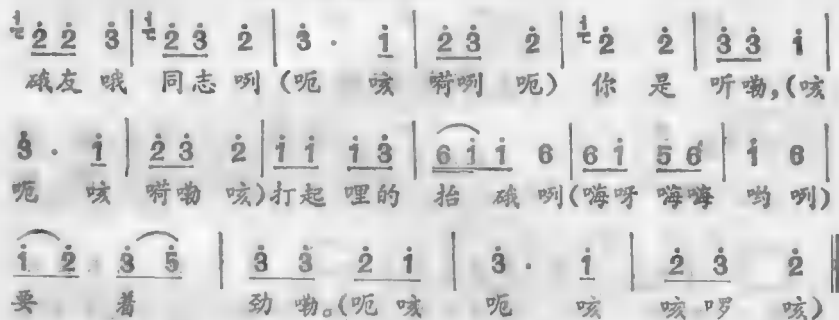 i 2 2 3 | i 2 3 2 | 3 · i | 2 3 2 | i 2 2 | 3 3 i |
硪友 哦 同志 咧 (呃 咳 嗬咧 呃) 你 是 听 嘞, (咳
3 · i | 2 3 2 | i i i 3 | 6 i i 6 | 6 i 5 6 | i 6 |
呃 咳 嗬嘞 咳) 打起 哩的 抬 硪 咧 (嗨呀 嗨嗨 哟 咧)
i 2 3 5 | 3 3 2 i | 3 · i | 2 3 2 ‖
要 着 劲 嘞。(呃 咳 呃 咳 咳 啰 咳)